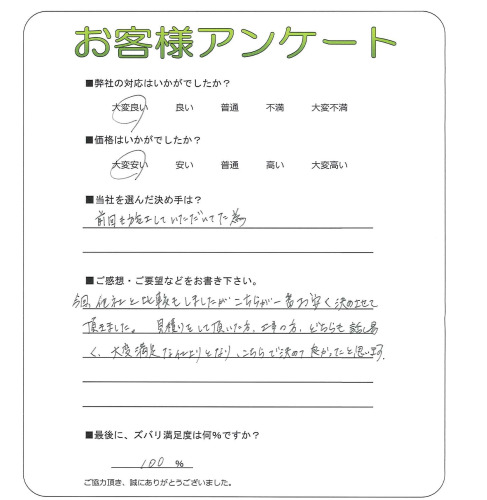 お客様アンケート
■弊社の対応はいかがでしたか?
大変良い 良い 普通 不満 大変不満
■価格はいかがでしたか?
大変安い 安い 普通 高い 大変高い
■当社を選んだ決め手は?
前回も施工していただいてた為
■ご感想・ご要望などをお書き下さい。
今回、他社と比較もしましたがこちらが一番お安く決めさせて
頂きました。 見積りをして頂いた方、工事の方、どちらも話し易
く、大変満足な仕上りとなり、こちらで決めて良かったと思います。
■最後に、ズバリ満足度は何%ですか?
100 %
ご協力頂き、誠にありがとうございました。